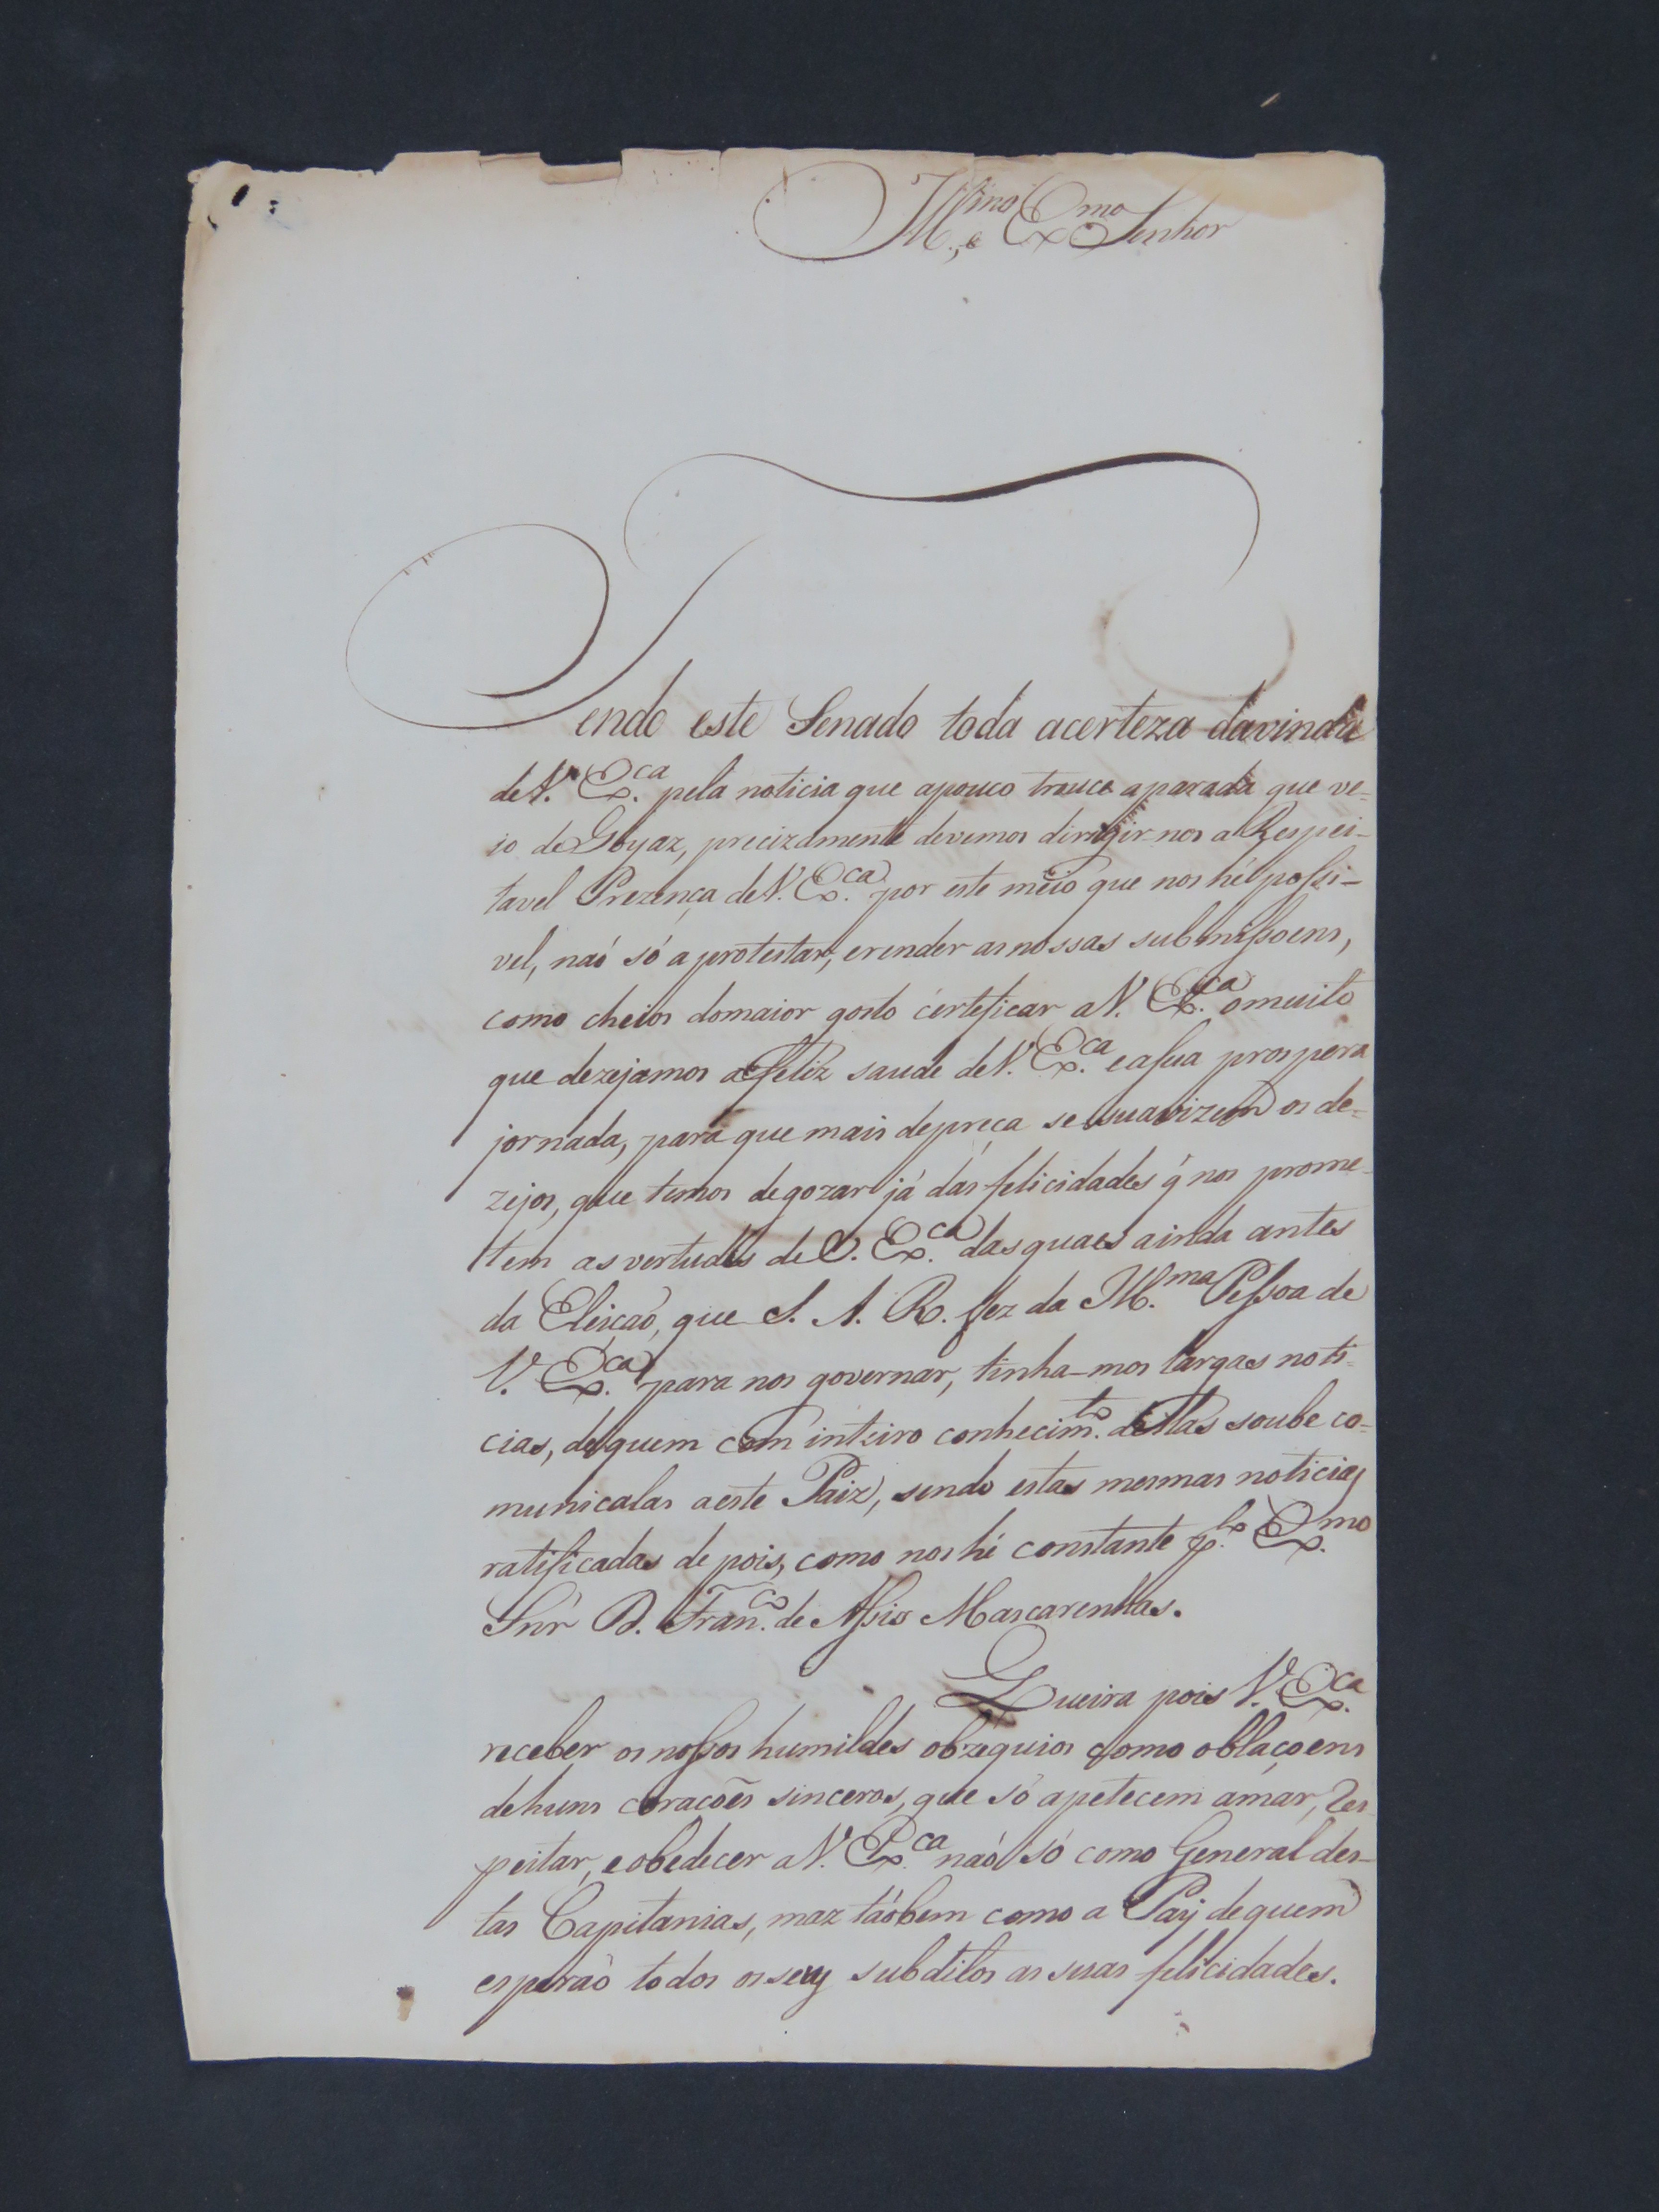 Illmo, e Exmo Senhor
Tendo este Senado toda acerteza davinda
de V. Exca. pela noticia que apouco trouce aparada que ve-
io de Goyaz, precizamente devemos dirigir-nos a Respei-
tavel Prezença de V. Exca. por este meio que nos hé possi-
vel, naó só a protestar, erender as nossas submissoens,
como cheios domaior gosto certeficar a V. Exca. omuito
que dezejamos afeliz saude de V. Exca. easua prospera
jornada, para que mais depreça se suavizem os de-
zejos, que temos degozar já das felicidades q̃ nos prome-
tem as vertudes de V. Exca. das quaes ainda antes
da Eleiçaó, que S. A. R. fez da Illma. Pessoa de
V. Exca. para nos governar, tinha-mos largas noti-
cias, dequem com inteiro conhecimto. dellas soube co-
municalas aeste Paiz, sendo estas mesmas noticias
ratificadas de pois, como nos hé constante plo. Exmo.
Snr̃ D. Franco. de Assis Mascarenhas.
Queira pois V. Exca.
receber os nossos humildes obzequios como oblaçoens
dehuns coracoẽs sinceros, que só apetecem amar, Res-
peitar, eobedecer a V. Exca. naó só como General des-
tas Capitanias, maz taóbem como a Paÿ dequem
esperaó todos os seus subditos as suas felicidades.